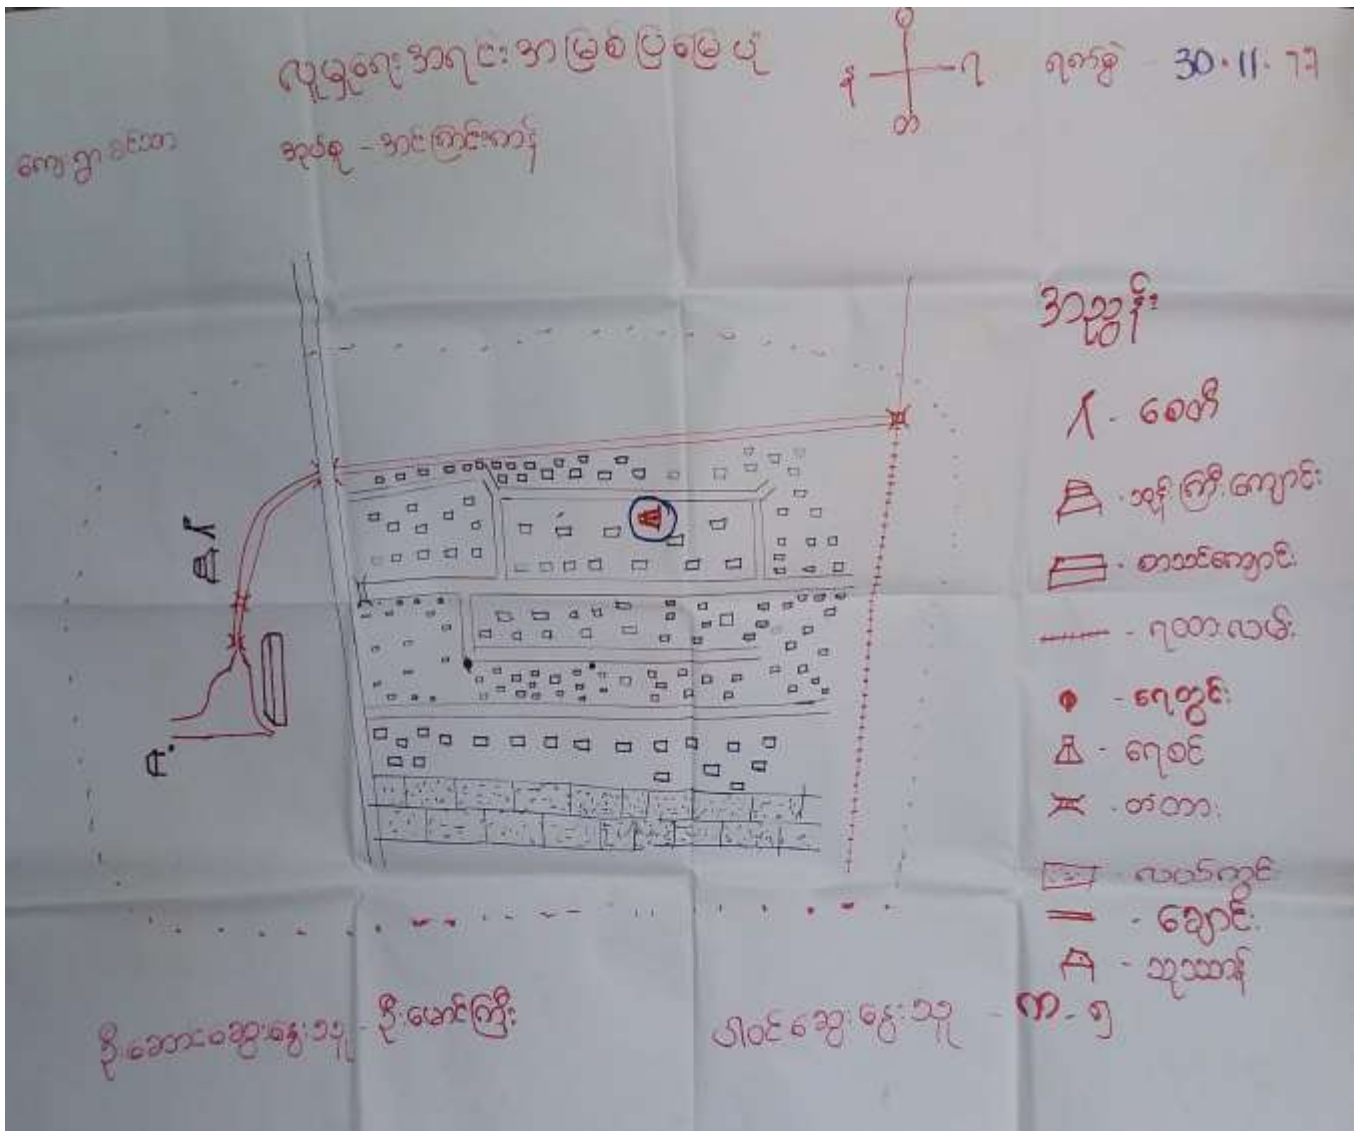 လူမှုရေးအရင်းအမြစ်ပြမြေပုံ
မ
န
ရ
တ
ရက်စွဲ - 30.11.
အုပ်စု - အင်ကြင်းကန်
အညွှန်း
- စေတီ
- ဘုန်းကြီးကျောင်း
- စာသင်ကျောင်း
- ရထားလမ်း
- ရေတွင်း
- ရေစင်
- တံတား
- လယ်ကွင်း
- ချောင်း
- သုဿာန်
ဦးဆောင်ဆွေးနွေးသူ - ဦးမောင်ကြီး
ပါဝင်ဆွေးနွေးသူ -